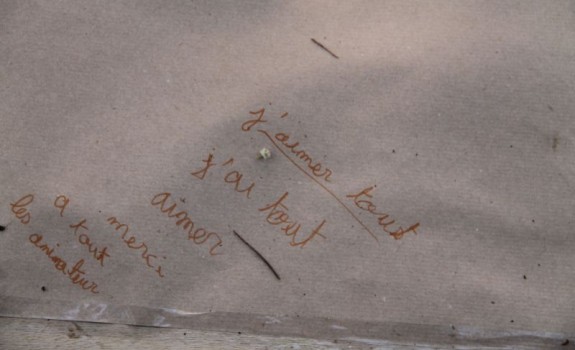 j'aimer tout
j'ai tout
aimer
merci
a tout
les animateur